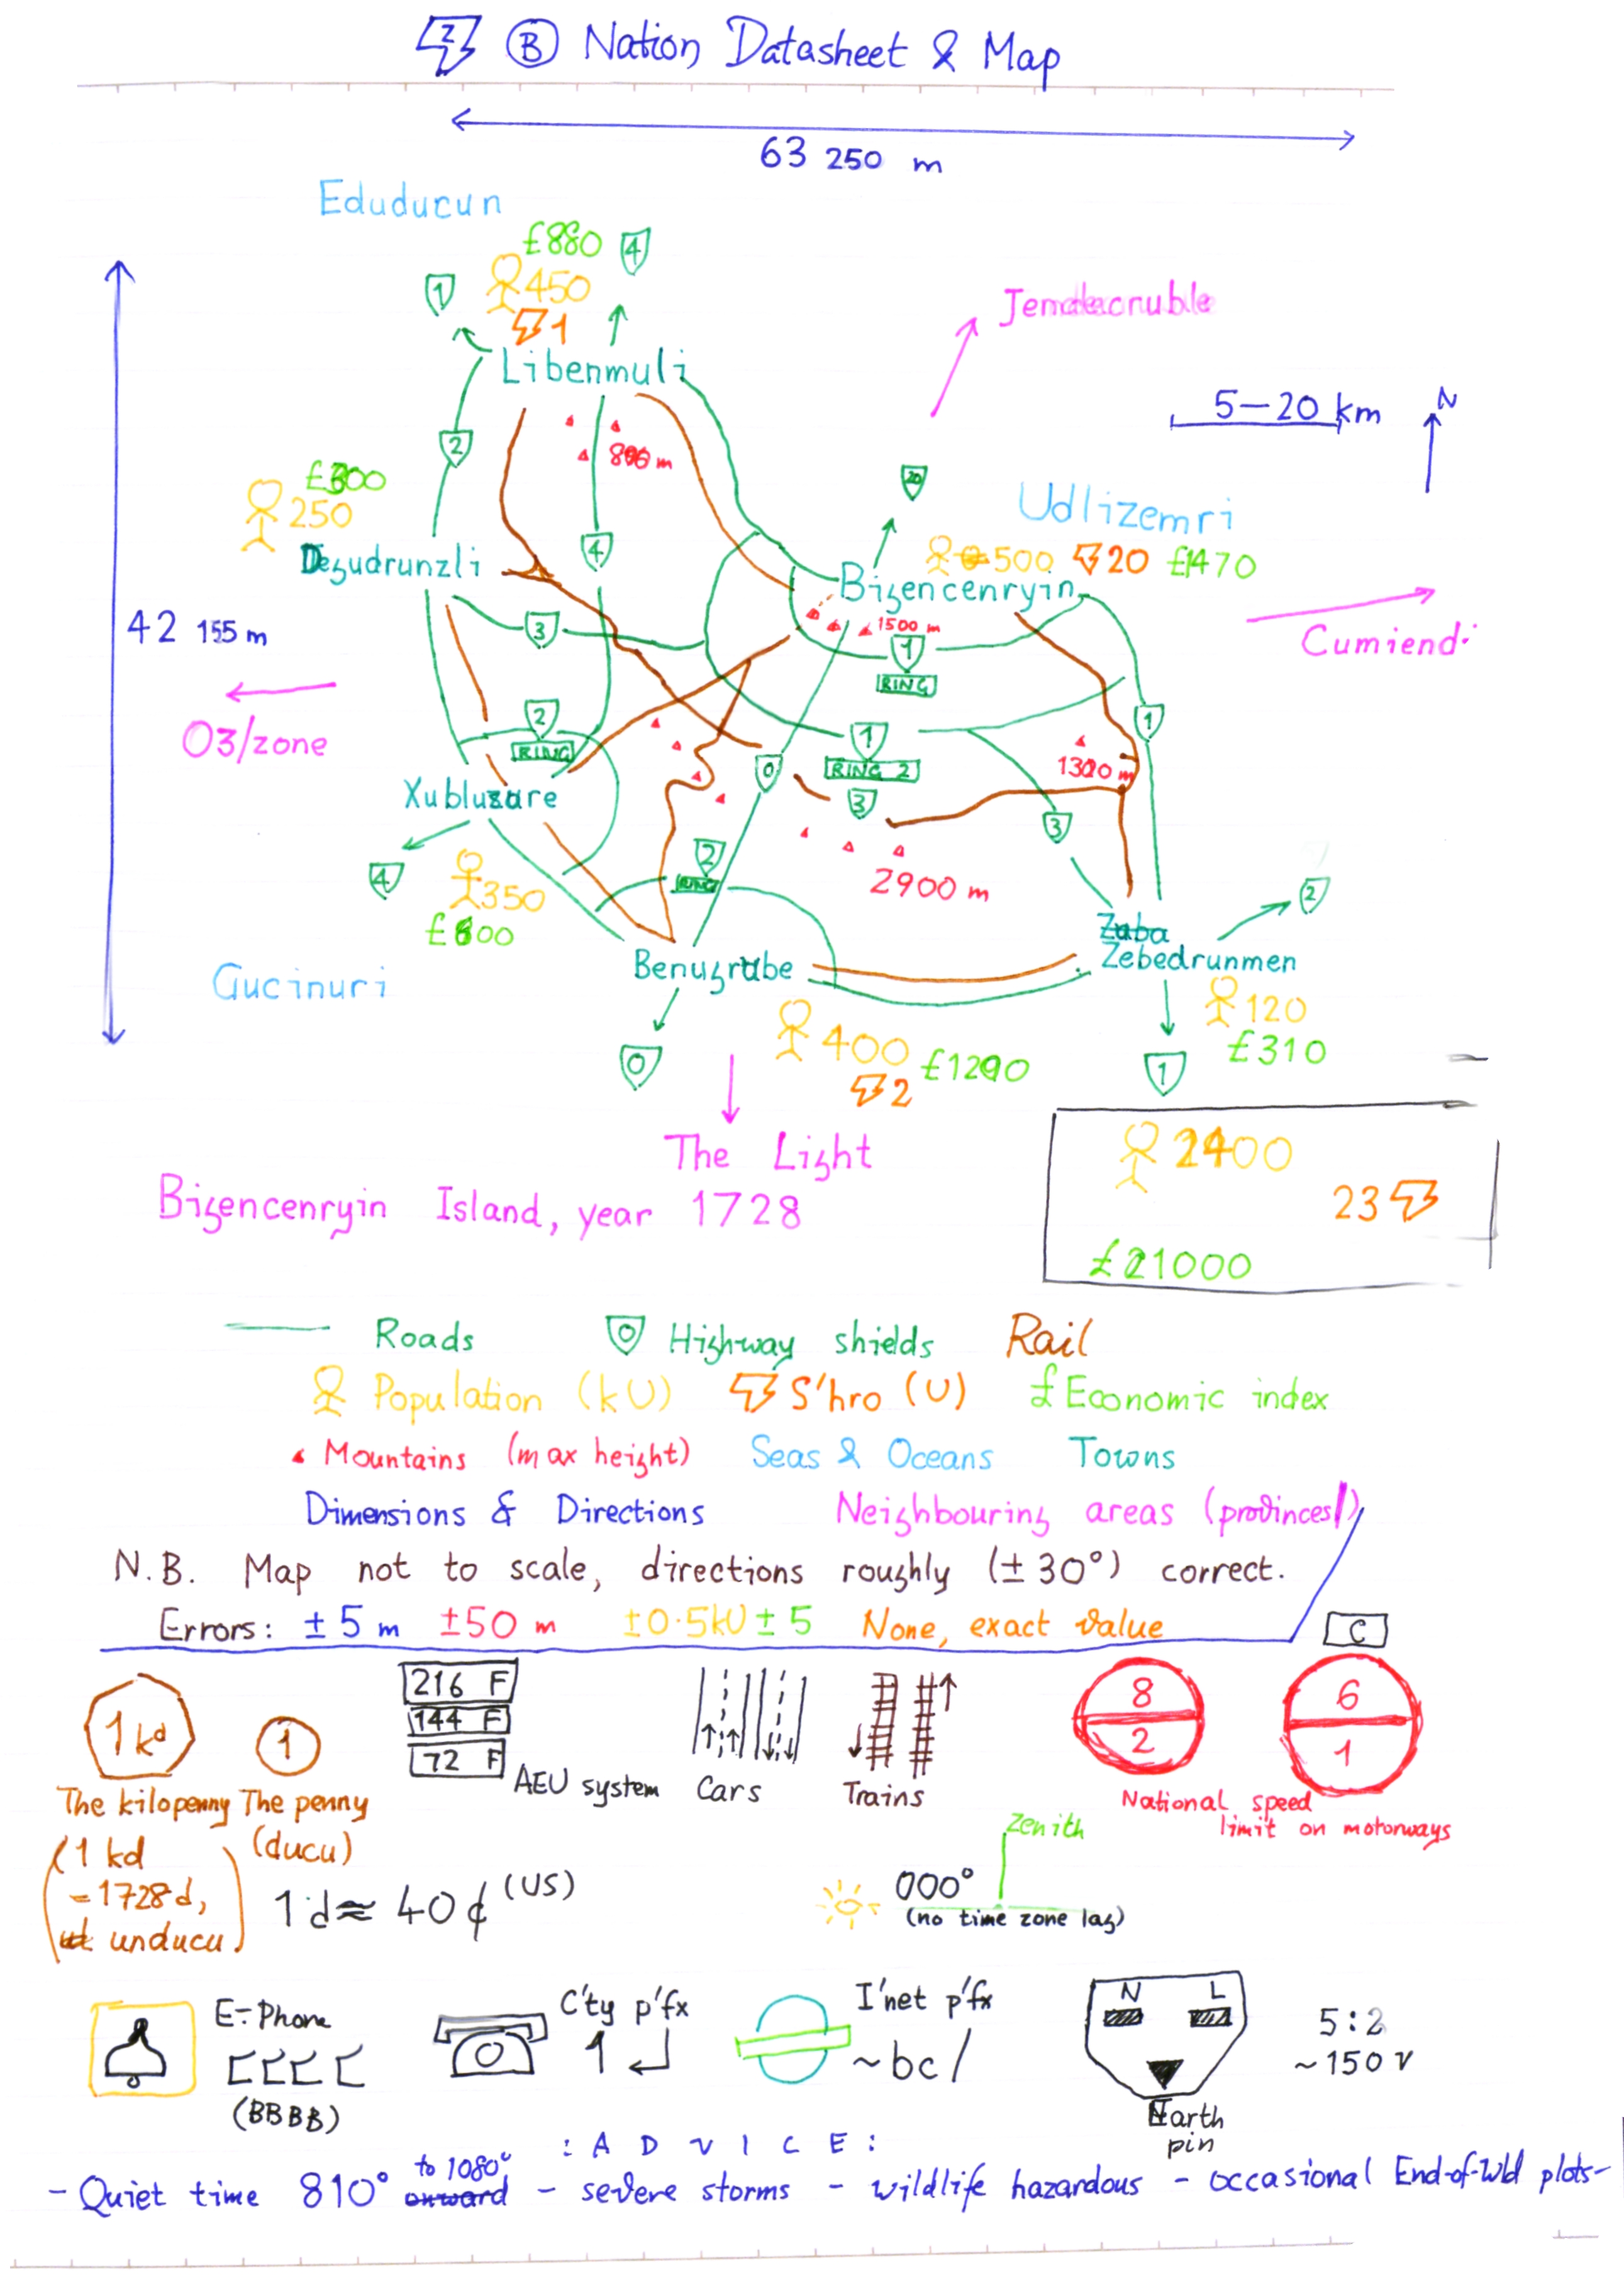 Z B Nation Datasheet & Map
63 250 m
Eduducun
£880 4
1 450
1
Libenmuli
Jemdeacruble
5–20 km N
2
m
20
250
Udlizemri
4
500 20 £1470
Dezudrunzli
Bizencenryin
1500 m
42 155 m
3
1
RING
Cumiendi
O3/zone
2
RING
1
RING 2
1
1320 m
0
3
3
Xubluzare
2
RING
2900 m
4
350
£600
2
Zaba
Zebedrunmen
Benuzrabe
Gucinuri
120
£310
400 £1290
2
0
1
The Light
Bizencenryin Island, year 1728
2400
23
£21000
Roads 0 Highway shields Rail
Population (kU) S'hro (U) £ Economic index
Mountains (max height) Seas & Oceans Towns
Dimensions & Directions Neighbouring areas (provinces)
N.B. Map not to scale, directions roughly (±30°) correct.
Errors: ±5 m ±50 m ±0·5kU ±5 None, exact value
C
1kd 1
216 F
144 F
72 F
AEU system
Cars
Trains
8
2
6
1
National speed
limit on motorways
The kilopenny The penny
(1 kd
=1728d,
unducu)
(ducu)
1d≈ 40¢ (US)
Zenith
000°
(no time zone lag)
E-Phone
(BBBB)
C'ty p'fx
1
I'net p'fx
~bc/
N L
Earth
pin
5:2
~150 V
: A D V I C E :
- Quiet time 810° onward to 1080° - severe storms - wildlife hazardous - occasional End-of-Wld plots-